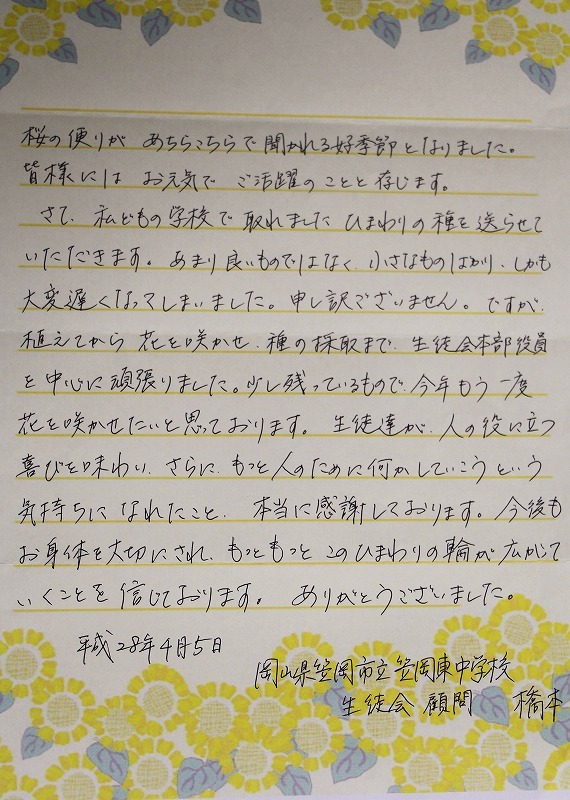 桜の便りが あちらこちらで聞かれる好季節となりました。
皆様には お元気で ご活躍のことと存じます。
さて、私どもの学校で取れました ひまわりの種を送らせて
いただきます。あまり良いものではなく、小さなものばかり、しかも
大変遅くなってしまいました。申し訳ございません。ですが、
植えてから 花を咲かせ、種の採取まで、生徒会本部役員
を中心に頑張りました。少し残っているもので、今年もう一度
花を咲かせたいと思っております。生徒達が、人の役に立つ
喜びを味わい、さらに、もっと人のために何かしていこうという
気持ちに なれたこと、本当に感謝しております。今後も
お身体を大切にされ、もっともっと このひまわりの輪が広がって
いくことを信じております。 ありがとうございました。
平成28年4月5日
岡山県笠岡市立笠岡東中学校
生徒会 顧問 橋本